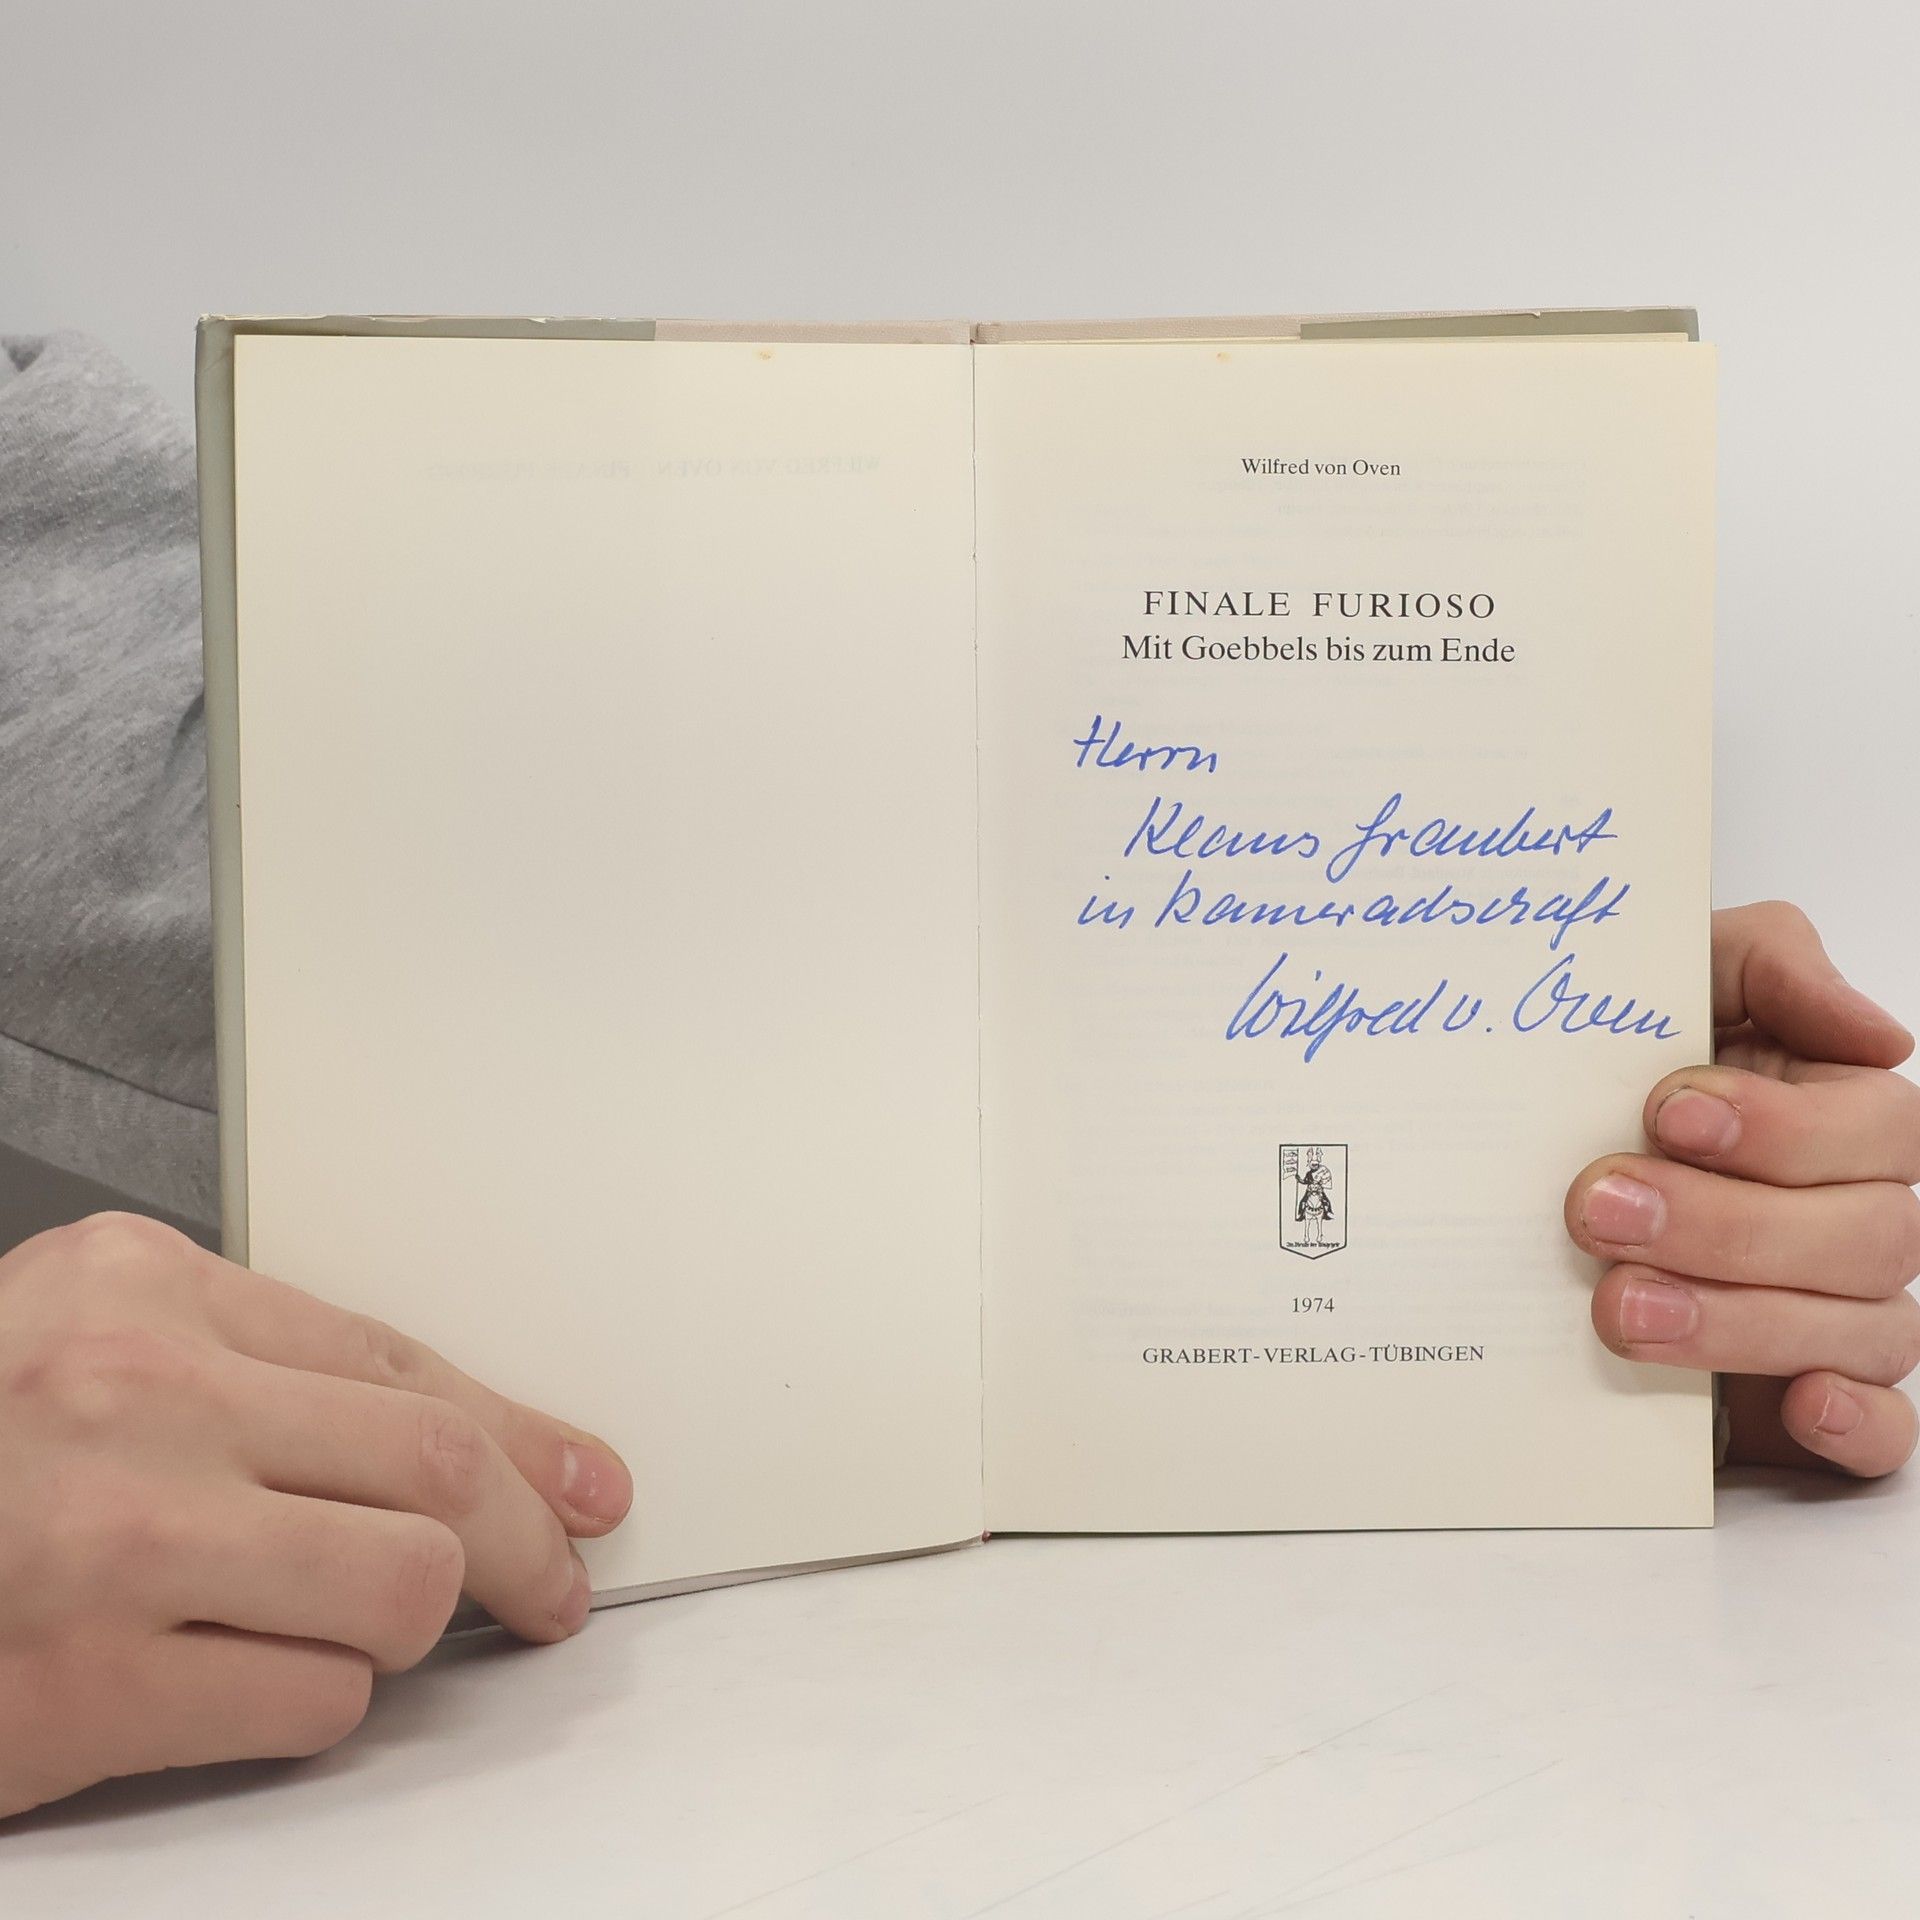 Wilfred von Oven
FINALE FURIOSO
Mit Goebbels bis zum Ende
Herrn
Klaus Graubert
in Kameradschaft
Wilfred v. Oven
1974
GRABERT-VERLAG-TÜBINGEN